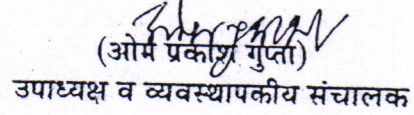 (ओम प्रकाश गुप्ता)
उपाध्यक्ष व व्यवस्थापकीय संचालक